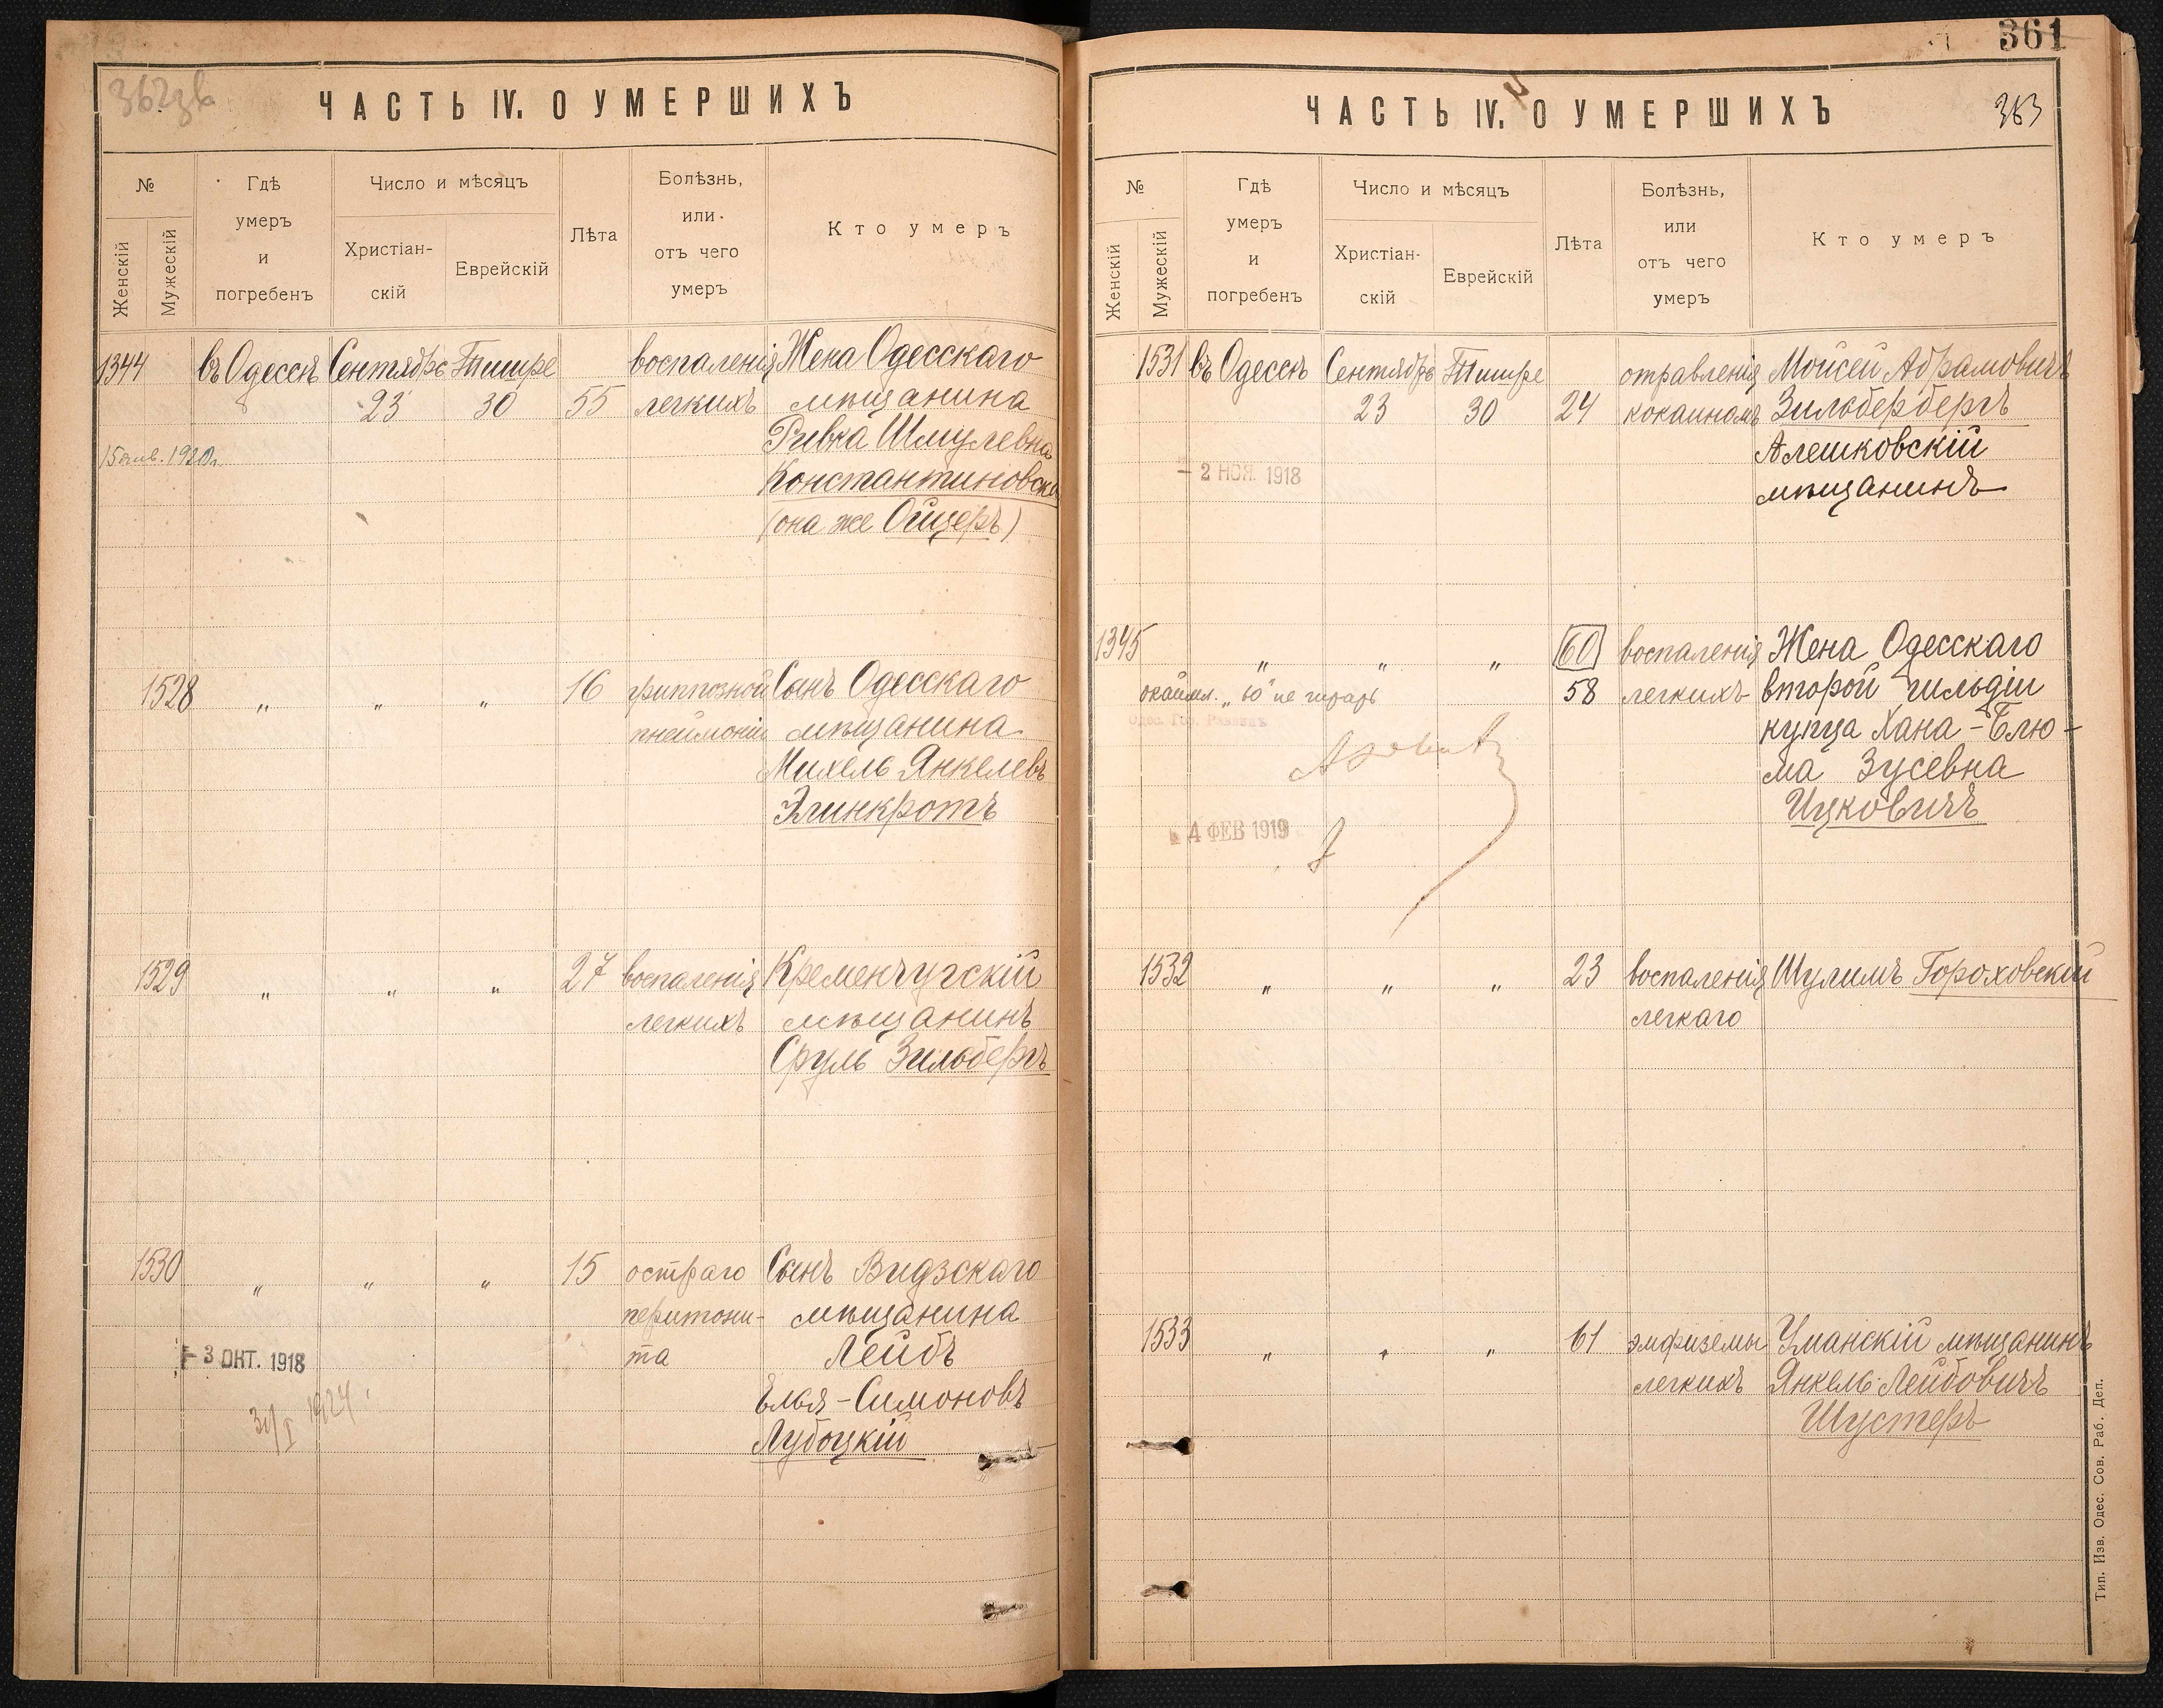 ЧАСТЬ IV. О УМЕРШИХЪ
№
Женскій
Мужескій
Гдѣ
умеръ
и
погребенъ
Число и мѣсяцъ
Христіан-
скій
Еврейскій
Лѣта
Болѣзнь,
или
отъ чего
умеръ
Кто умеръ
1344 въ Одессѣ Сентябрь Тишре воспаленія Жена Одесскаго
23 30 55 легкихъ мѣщанина
Ривка Шмулевна
15 янв. 1920 г.
Константиновск
(она же Ойцеръ)
1528 " " " 16 гриппозной Сынъ Одесскаго
пнеймоніи мѣщанина
Михель Янкелевъ
Элинкротъ
1529 " " " 27 воспаленія Кременчугскій
легкихъ мѣщанинъ
Сруль Зильбергъ
1530 " " " 15 остраго Сынъ Видзскаго
перитони- мѣщанина
- 3 ОКТ. 1918 та Лейбъ
Елья-Симоновъ
1924
Лубоцкій
361
ЧАСТЬ IV. О УМЕРШИХЪ
363
№
Женскій
Мужескій
Гдѣ
умеръ
и
погребенъ
Число и мѣсяцъ
Христіан-
скій
Еврейскій
Лѣта
Болѣзнь,
или
отъ чего
умеръ
Кто умеръ
1531 въ Одессѣ Сентябрь Тишре отравленія Моисей Абрамовичъ
23 30 24 кокаиномъ Зильбербергъ
Алешковскій
- 2 НОЯ. 1918
мѣщанинъ
1345 " " " 60 воспаленія Жена Одесскаго
58 легкихъ второй гильдіи
купца Хана-Блю-
ма Зусевна
4 ФЕВ 1919 Ицковичъ
1532 " " " 23 воспаленія Шулимъ Гороховскій
легкаго
1533 " " " 61 эмфиземы Уманскій мѣщанинъ
легкихъ Янкель Лейбовичъ
Шустеръ
Тип. Изв. Одес. Сов. Раб. Деп.